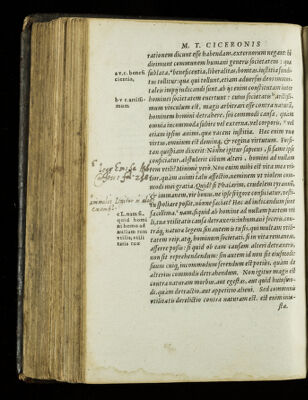 M. T. CICERONIS
rationem dicunt esse habendam, externorum negant: hi
dirimunt communem humani generis societatem: qua
sublata, beneficentia, liberalitas, bonitas, iustitia fundi-
tus tollitur: quæ qui tollunt, etiam adversus deos immor-
tales impij iudicandi sunt. ab ijs enim constitutam inter
homines societatem evertunt: cuius societatis arctissi-
mum vinculum est, magis arbitrari esse contra naturã,
hominem homini detrahere, sui commodi causa, quàm
omnia incommoda subire vel externa, vel corporis, vel
etiam ipsius animi, quæ vacent iustitia. Hæc enim una
virtus, omnium est domina, & regina virtutum. Forsi-
tan quispiam dixerit: Nónne igitur sapiens, si fame ipse
conficiatur, abstulerit cibum alteri, homini ad nullam
rem utili? Minimè verò. Non enim mihi est vita mea uti-
lior, quàm animi talis affectio, neminem ut violem com-
modi mei gratia. Quid? si Phalarim, crudelem tyrannũ,
& immanem, vir bonus, ne ipse frigore conficiatur, vesti-
tu spoliare possit, nónne faciat? Hæc ad iudicandum sunt
facillima. nam, si quid ab homine ad nullam partem uti-
li, tuæ utilitatis causa detraxeris, inhumanè feceris, con-
tráq; naturæ legem: sin autem is tu sis, qui multam utili-
tatem reip. atq; hominum societati, si in vita remaneas,
afferre possis: si quid ob eam causam alteri detraxeris,
non sit reprehendendum: sin autem id non sit eiusmodi,
suum cuiq; incommodum ferendum est potiùs, quàm de
alterius commodis detrahendum. Non igitur magis est
contra naturam morbus, aut egestas, aut quid huiusmo-
di, quàm detractio, aut appetitio alieni. Sed communis
utilitatis derelictio contra naturam est. est enim iniu-
sta.
a v.c. benefi
cientia,
b v r arctissi-
mum
c L. nam si
quid homi
ni homo ad
nullam rem
utili, utili-
tatis tuæ